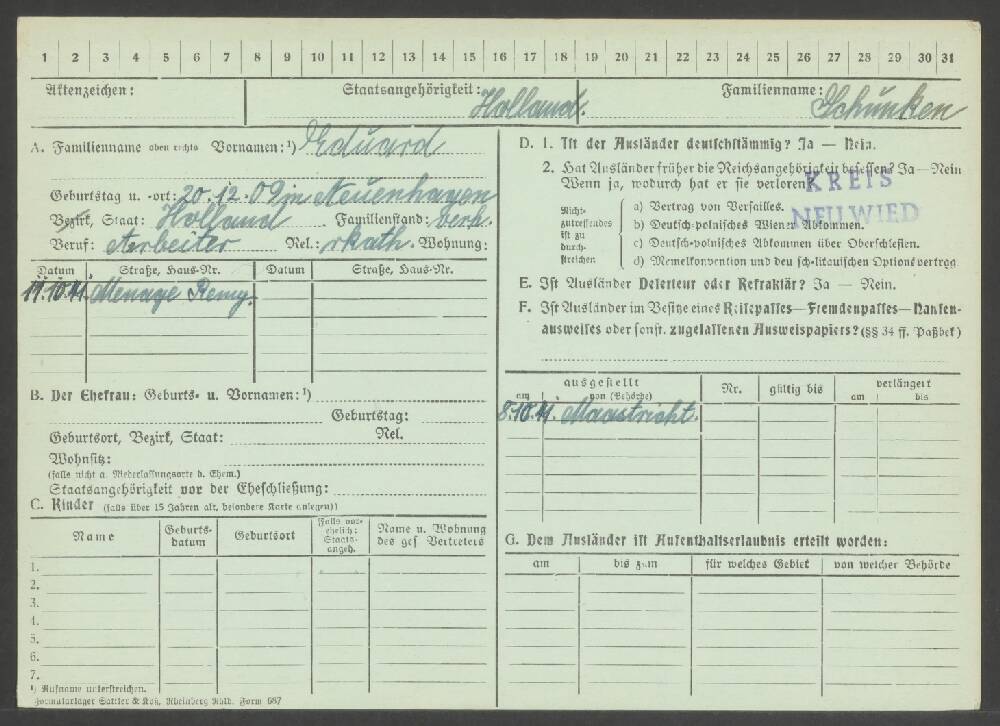 1 2 3 4 5 6 7 8 9 10 11 12 13 14 15 16 17 18 19 20 21 22 23 24 25 26 27 28 29 30 31
Aktenzeichen: Staatsangehörigkeit: Holland. Familienname: Schunken
A. Familienname oben rechts Vornamen:¹) Eduard
Geburtstag u. -ort: 20.12.09 in Neuenhagen
Bezirk, Staat: Holland Familienstand: verh.
Beruf: Arbeiter Rel.: rkath. Wohnung:
Datum Straße, Haus-Nr. Datum Straße, Haus-Nr.
11.10.41. Menage Remy.
B. Der Ehefrau: Geburts- u. Vornamen:¹)
Geburtstag:
Geburtsort, Bezirk, Staat: Rel.
Wohnsitz:
(falls nicht a. Niederlassungsorte d. Ehem.)
Staatsangehörigkeit vor der Eheschließung:
C. Kinder (falls über 15 Jahren alt, besondere Karte anlegen))
Name Geburts-datum Geburtsort Falls unehelich: Staatsangeh. Name u. Wohnung des ges Vertreters
1.
2.
3.
4.
5.
6.
7.
¹) Rufname unterstreichen.
Formularlager Sattler & Koß, Rheinberg Rhld. Form 687
D. 1. Ist der Ausländer deutschstämmig? Ja — Nein.
2. Hat Ausländer früher die Reichsangehörigkeit besessen? Ja — Nein
Wenn ja, wodurch hat er sie verloren?
KREIS
NEUWIED
Nicht-zutreffendes ist zu durch-streichen
a) Vertrag von Versailles.
b) Deutsch-polnisches Wiener Abkommen.
c) Deutsch-polnisches Abkommen über Oberschlesien.
d) Memelkonvention und den sch-litauischen Optionsvertrag.
E. Ist Ausländer Deserteur oder Refraktär? Ja — Nein.
F. Ist Ausländer im Besitze eines Reisepasses—Fremdenpasses—Nansen-
ausweises oder sonst. zugelassenen Ausweispapiers? (§§ 34 ff. Paßbek)
ausgestellt Nr. gültig bis verlängert
am von (Behörde) am bis
8.10.41. Maastricht.
G. Dem Ausländer ist Aufenthaltserlaubnis erteilt worden:
am bis zum für welches Gebiet von welcher Behörde